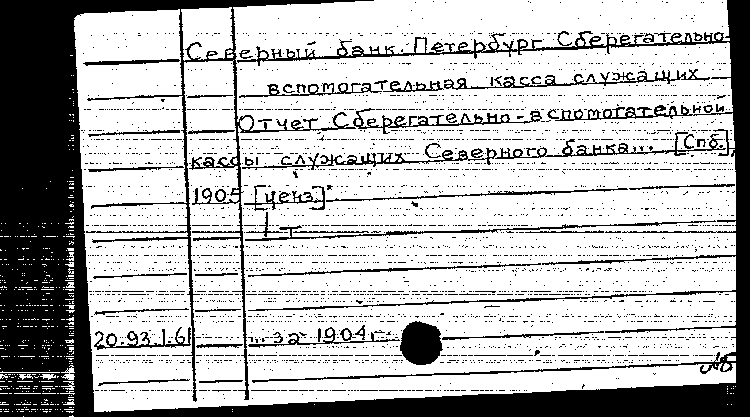 Северный банк. Петербург. Сберегательно-
вспомогательная касса служащих
Отчет Сберегательно-вспомогательной
кассы служащих Северного банка... [Спб.],
1905 [ценз.].
1 т
20.93.1.61 ... за 1904 г.